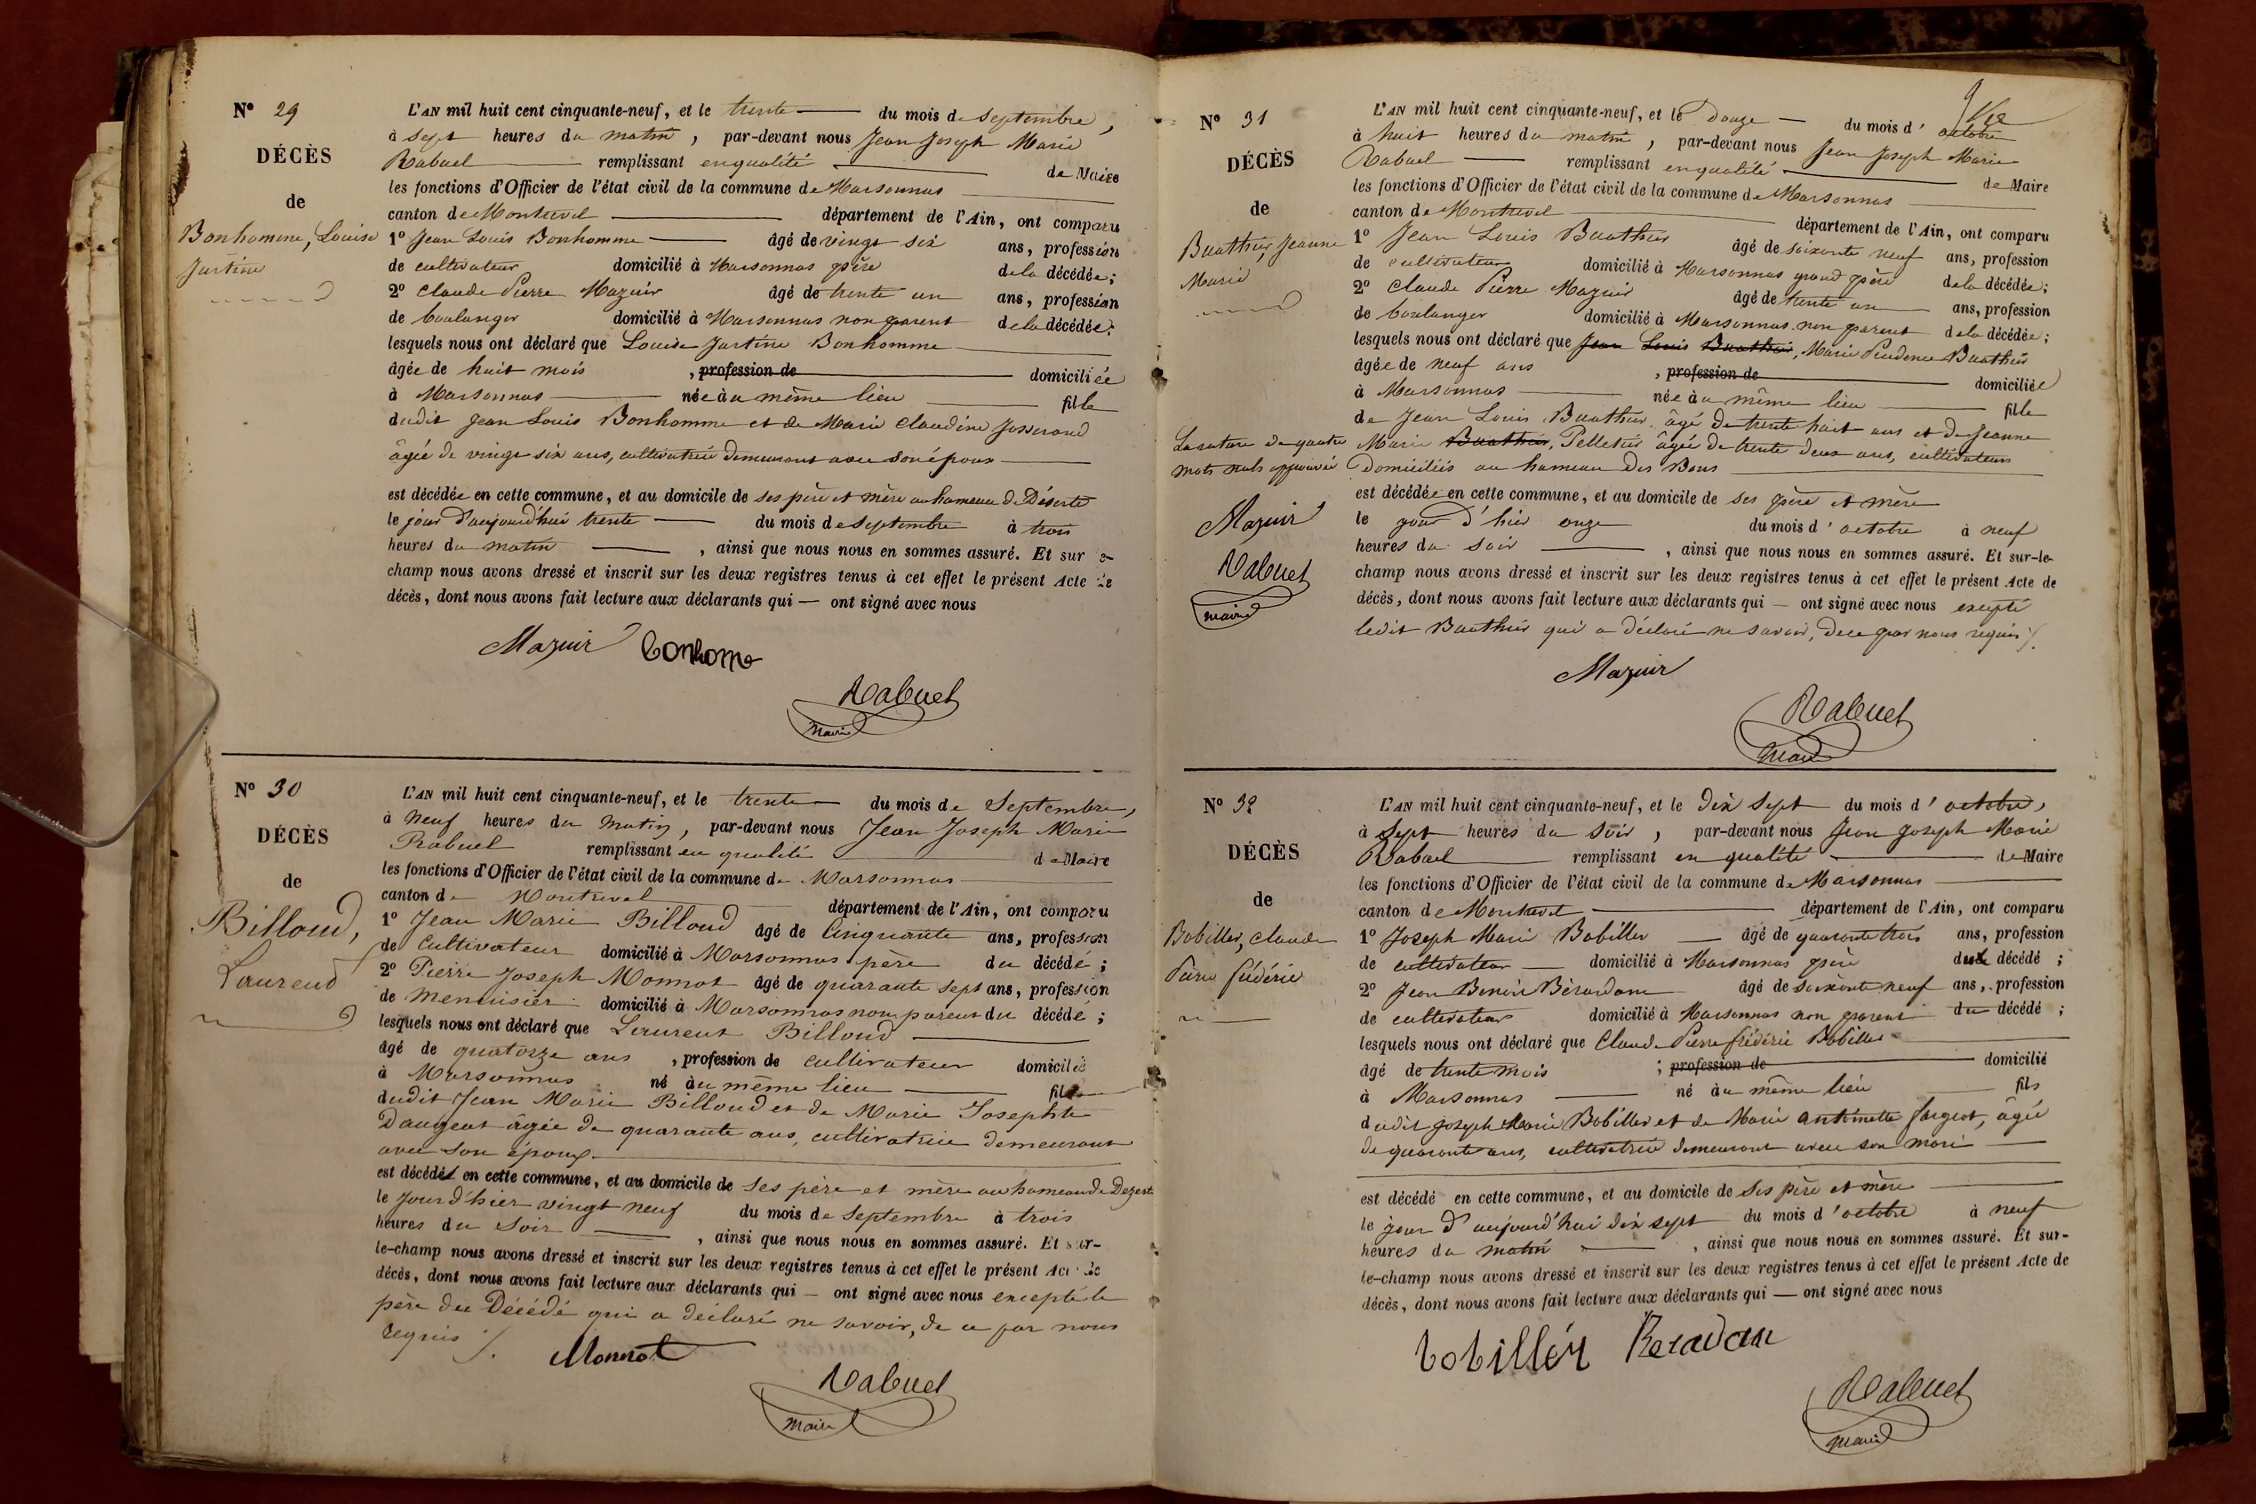 N° 29
DÉCÈS
de
Bonhomme, Louise
Justine
L'AN mil huit cent cinquante-neuf, et le trente du mois de Septembre,
à sept heures du matin, par-devant nous Jean Joseph Marie
Rabuel remplissant en qualité de Maire
les fonctions d'Officier de l'état civil de la commune de Marsonnas
canton de Montrevel département de l'Ain, ont comparu
1° Jean Louis Bonhomme âgé de vingt six ans, profession
de cultivateur domicilié à Marsonnas père de la décédée;
2° Claude Pierre Mazuir âgé de trente un ans, profession
de boulanger domicilié à Marsonnas non parent de la décédée;
lesquels nous ont déclaré que Louise Justine Bonhomme
âgée de huit mois, profession de domiciliée
à Marsonnas née à u même lieu fille
dudit Jean Louis Bonhomme et de Marie Claudine Josserand
âgée de vingt six ans, cultivatrice demeurant avec son époux
est décédée en cette commune, et au domicile de ses père et mère au hameau de Déserte
le jour d'aujourd'hui trente du mois de Septembre à trois
heures du matin, ainsi que nous nous en sommes assuré. Et sur-le-
champ nous avons dressé et inscrit sur les deux registres tenus à cet effet le présent Acte de
décès, dont nous avons fait lecture aux déclarants qui — ont signé avec nous
Mazuir bonhome
Rabuel
maire
N° 30
DÉCÈS
de
Billoud,
Laurend
L'AN mil huit cent cinquante-neuf, et le trente du mois de Septembre,
à neuf heures du matin, par-devant nous Jean Joseph Marie
Rabuel remplissant en qualité de Maire
les fonctions d'Officier de l'état civil de la commune de Marsonnas
canton de Montrevel département de l'Ain, ont comparu
1° Jean Marie Billoud âgé de Cinquante ans, profession
de Cultivateur domicilié à Marsonnas père du décédé;
2° Pierre Joseph Monnot âgé de quarante sept ans, profession
de menuisier domicilié à Marsonnas non parent du décédé;
lesquels nous ont déclaré que Laurent Billoud
âgé de quatorze ans, profession de cultivateur domicilié
à Marsonnas né à u même lieu fils
dudit Jean Marie Billoud et de Marie Josephte
Daugent âgée de quarante ans, cultivatrice demeurant
avec son époux
est décédé en cette commune, et au domicile de ses père et mère au hameau de Dezerte
le jour d'hier vingt neuf du mois de Septembre à trois
heures du soir, ainsi que nous nous en sommes assuré. Et sur-
le-champ nous avons dressé et inscrit sur les deux registres tenus à cet effet le présent Acte de
décès, dont nous avons fait lecture aux déclarants qui — ont signé avec nous excepté le
père du Décédé qui a déclaré ne savoir, de ce par nous
requis ./.
Monnot
Rabuel
maire
N° 31
DÉCÈS
de
Buathier, Jeanne
Marie
La rature de quatre
mots nuls approuvée
Mazuir
Rabuel
maire
L'AN mil huit cent cinquante-neuf, et le Douze du mois d'octobre
à huit heures du matin, par-devant nous Jean Joseph Marie
Rabuel remplissant en qualité de Maire
les fonctions d'Officier de l'état civil de la commune de Marsonnas
canton de Montrevel département de l'Ain, ont comparu
1° Jean Louis Buathier âgé de soixante neuf ans, profession
de cultivateur domicilié à Marsonnas grand père de la décédée;
2° Claude Pierre Mazuir âgé de trente un ans, profession
de boulanger domicilié à Marsonnas non parent de la décédée;
lesquels nous ont déclaré que Jean Louis Buathier, Marie Prudence Buathier
âgée de neuf ans, profession de domiciliée
à Marsonnas née à u même lieu fille
de Jean Louis Buathier âgé de trente huit ans et de Jeanne
Marie Buathier, Pelletier âgée de trente deux ans, cultivateurs
Domiciliés au hameau des Bons
est décédée en cette commune, et au domicile de ses père et mère
le jour d'hier onze du mois d'octobre à neuf
heures du soir, ainsi que nous nous en sommes assuré. Et sur-le-
champ nous avons dressé et inscrit sur les deux registres tenus à cet effet le présent Acte de
décès, dont nous avons fait lecture aux déclarants qui — ont signé avec nous excepté
ledit Buathier qui a déclaré ne savoir, de ce par nous requis ./.
Mazuir
Rabuel
maire
N° 32
DÉCÈS
de
Bobiller, Claude
Pierre frédéric
L'AN mil huit cent cinquante-neuf, et le Dix sept du mois d'octobre,
à sept heures du soir, par-devant nous Jean Joseph Marie
Rabuel remplissant en qualité de Maire
les fonctions d'Officier de l'état civil de la commune de Marsonnas
canton de Montrevel département de l'Ain, ont comparu
1° Joseph Marie Bobiller âgé de quarante trois ans, profession
de cultivateur domicilié à Marsonnas père du décédé;
2° Jean Benoit Bérardan âgé de soixante neuf ans, profession
de cultivateur domicilié à Marsonnas non parent du décédé;
lesquels nous ont déclaré que Claude Pierre frédéric Bobiller
âgé de trente mois; profession de domicilié
à Marsonnas né à u même lieu fils
dudit Joseph Marie Bobiller et de Marie Antoinette Sargent, âgée
de quarante ans, cultivatrice demeurant avec son mari
est décédé en cette commune, et au domicile de ses père et mère
le jour d'aujourd'hui dix sept du mois d'octobre à neuf
heures du matin, ainsi que nous nous en sommes assuré. Et sur-
le-champ nous avons dressé et inscrit sur les deux registres tenus à cet effet le présent Acte de
décès, dont nous avons fait lecture aux déclarants qui — ont signé avec nous
bobillér Beradan
Rabuel
maire